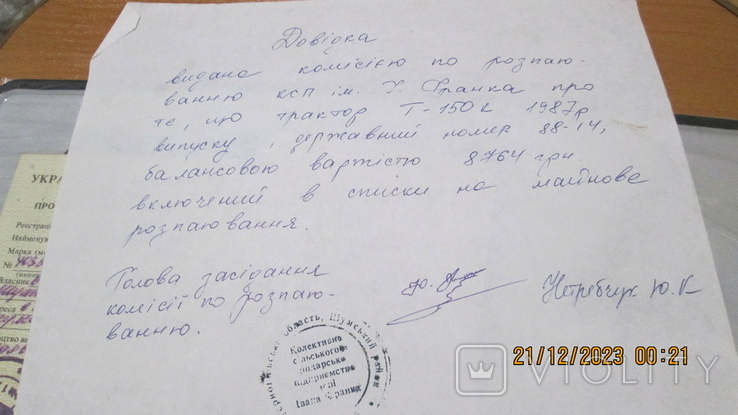 Довідка
видана комісією по розпаю-
ванню КСП ім. І. Франка про
те, що трактор Т-150К 1987р
випуску, державний номер 88-14,
балансовою вартістю 8764 грн.
включений в списки на майнове
розпаювання.
Голова засідання
комісії по розпаю-
ванню.
Нетребчук Ю.К
область, Шумський район
Колективне
сільського
подарське
підприємство
імені
Івана Франка
УКРА
ПРО
Реєстрац
Наймену
Марка (м
№
21/12/2023 00:21
VIOLITY